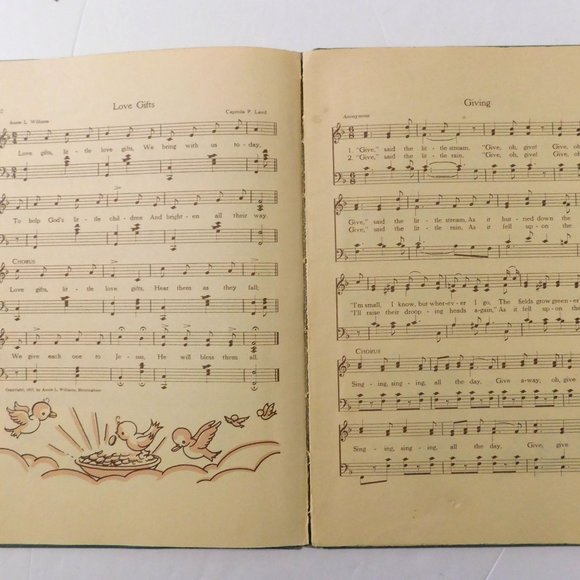 Love Gifts
Annie L. Williams
Capitola P. Laird
Love gifts, lit - tle love gifts, We bring with us to - day,
To help God's lit - tle chil - dren And bright - en all their way.
CHORUS
Love gifts, lit - tle love gifts, Hear them as they fall;
We give each one to Je - sus, He will bless them all.
Copyright, 1937, by Annie L. Williams, Birmingham
Giving
Anonymous
1. "Give," said the lit - tle stream, "Give, oh, give! Give, oh,
2. "Give," said the lit - tle rain, "Give, oh, give! Give, oh,
Give," said the lit - tle stream, As it hur - ried down the
Give," said the lit - tle rain, As it fell up - on the
"I'm small, I know, but wher - ev - er I go, The fields grow green - er
"I'll raise their droop - ing heads a - gain," As it fell up - on the
CHORUS
Sing - ing, sing - ing, all the day, Give a - way, oh, give
Sing - ing, sing - ing, all the day, Give, give